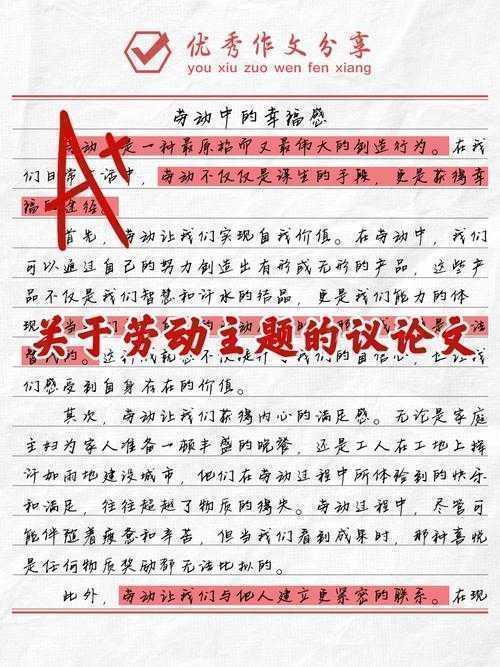 优秀作文分享
you xiu zuo wen fen xiang
劳动中的幸福感
劳动,是一种最原始而又最伟大的创造行为。在我
们日常生活中,劳动不仅仅是谋生的手段,更是获得幸
福的途径。
A+
首先,劳动让我们实现自我价值。在劳动中,我们
可以通过自己的努力创造出有形或无形的产品,这些产
品不仅是我们智慧和汗水的结晶,更是我们能力的体
现。当
关于劳动主题的议论文
们感受到自身存在的价值。
其次,劳动让我们获得内心的满足感。无论是家庭
主妇为家人准备一顿丰盛的晚餐,还是工人在工地上挥
汗如雨地建设城市,他们在劳动过程中所体验到的快乐
和满足,往往超越了物质的得失。劳动过程中,尽管可
能伴随着疲惫和辛苦,但当我们看到成果时,那种喜悦
是任何物质奖励都无法比拟的。
此外,劳动让我们与他人建立更紧密的联系。在现